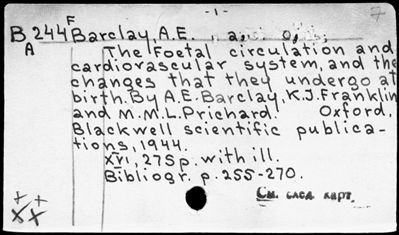 -1-
B 244 F Barclay, A.E. a; o,
A The Foetal circulation and
cardiorascular system, and the
changes that they undergo at
birth. By A.E. Barclay, K.J. Franklin
and M.M.L. Prichard. Oxford,
Blackwell scientific publica-
tions, 1944.
XVI, 275 p. with ill.
Bibliogr. p. 255-270.
См. след. карт.